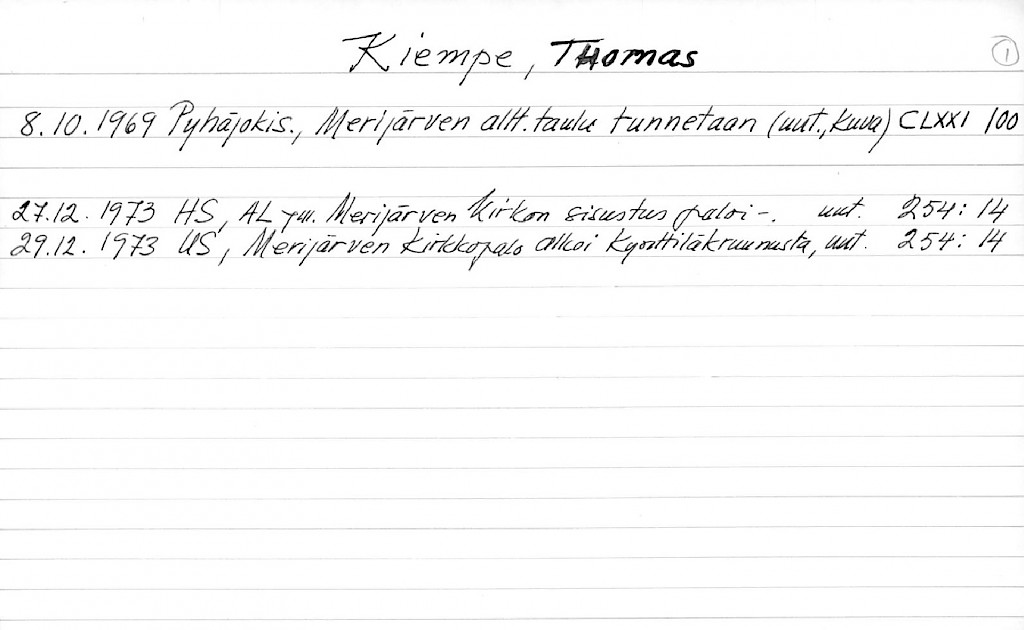 Kiempe, Thomas 1
8.10.1969 Pyhäjokis., Merijärven altt.taulu tunnetaan (uut., kuva) CLXXI 100
27.12. 1973 HS, AL ym. Merijärven kirkon sisustus paloi -. uut. 254: 14
29.12. 1973 US, Merijärven kirkkopalo alkoi kynttiläkruunusta, uut. 254: 14